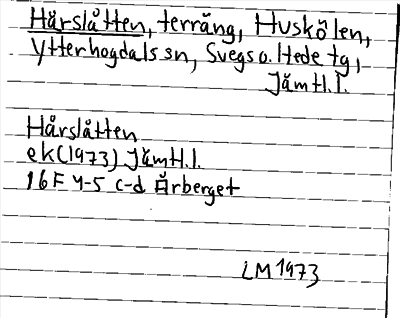 Hårslåtten, terräng, Huskölen,
Ytterhogdals sn, Svegs o. Hede tg,
Jämtl.l.
Hårslåtten
ek(1973) Jämtl.l.
16F 4-5 c-d Årberget
LM 1973